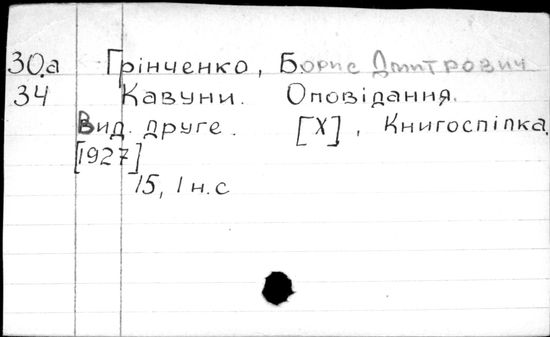 30.а Грінченко, Борис Дмитрович
34 Кавуни. Оповідання.
Вид. друге. [Х], Книгоспілка,
[1927]
15, 1 н.с